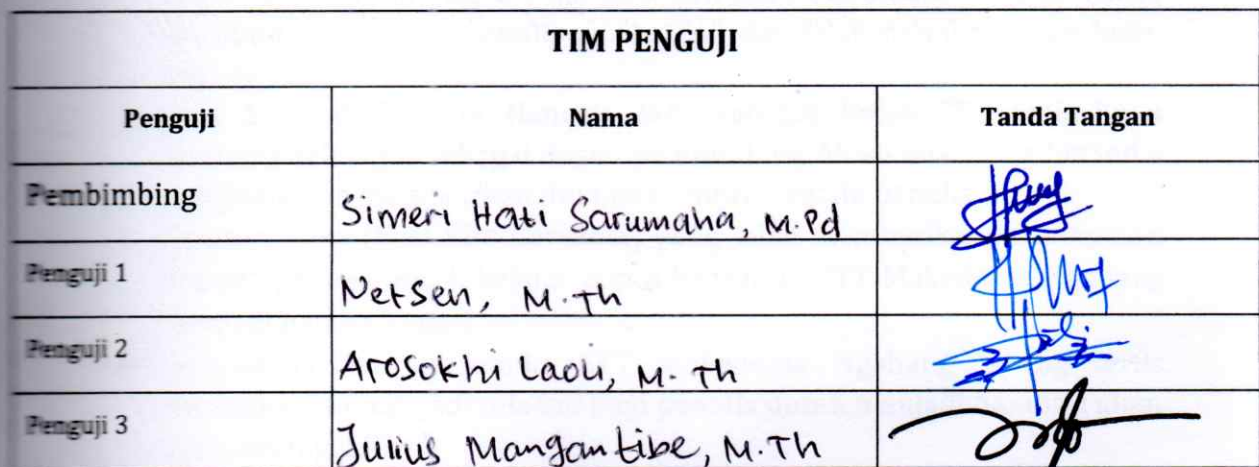 TIM PENGUJI
Penguji Nama Tanda Tangan
Pembimbing Simeri Hati Sarumaha, M.Pd
Penguji 1 Netsen, M.Th
Penguji 2 Arosokhi Laoli, M.Th
Penguji 3 Julius Mangantibe, M.Th